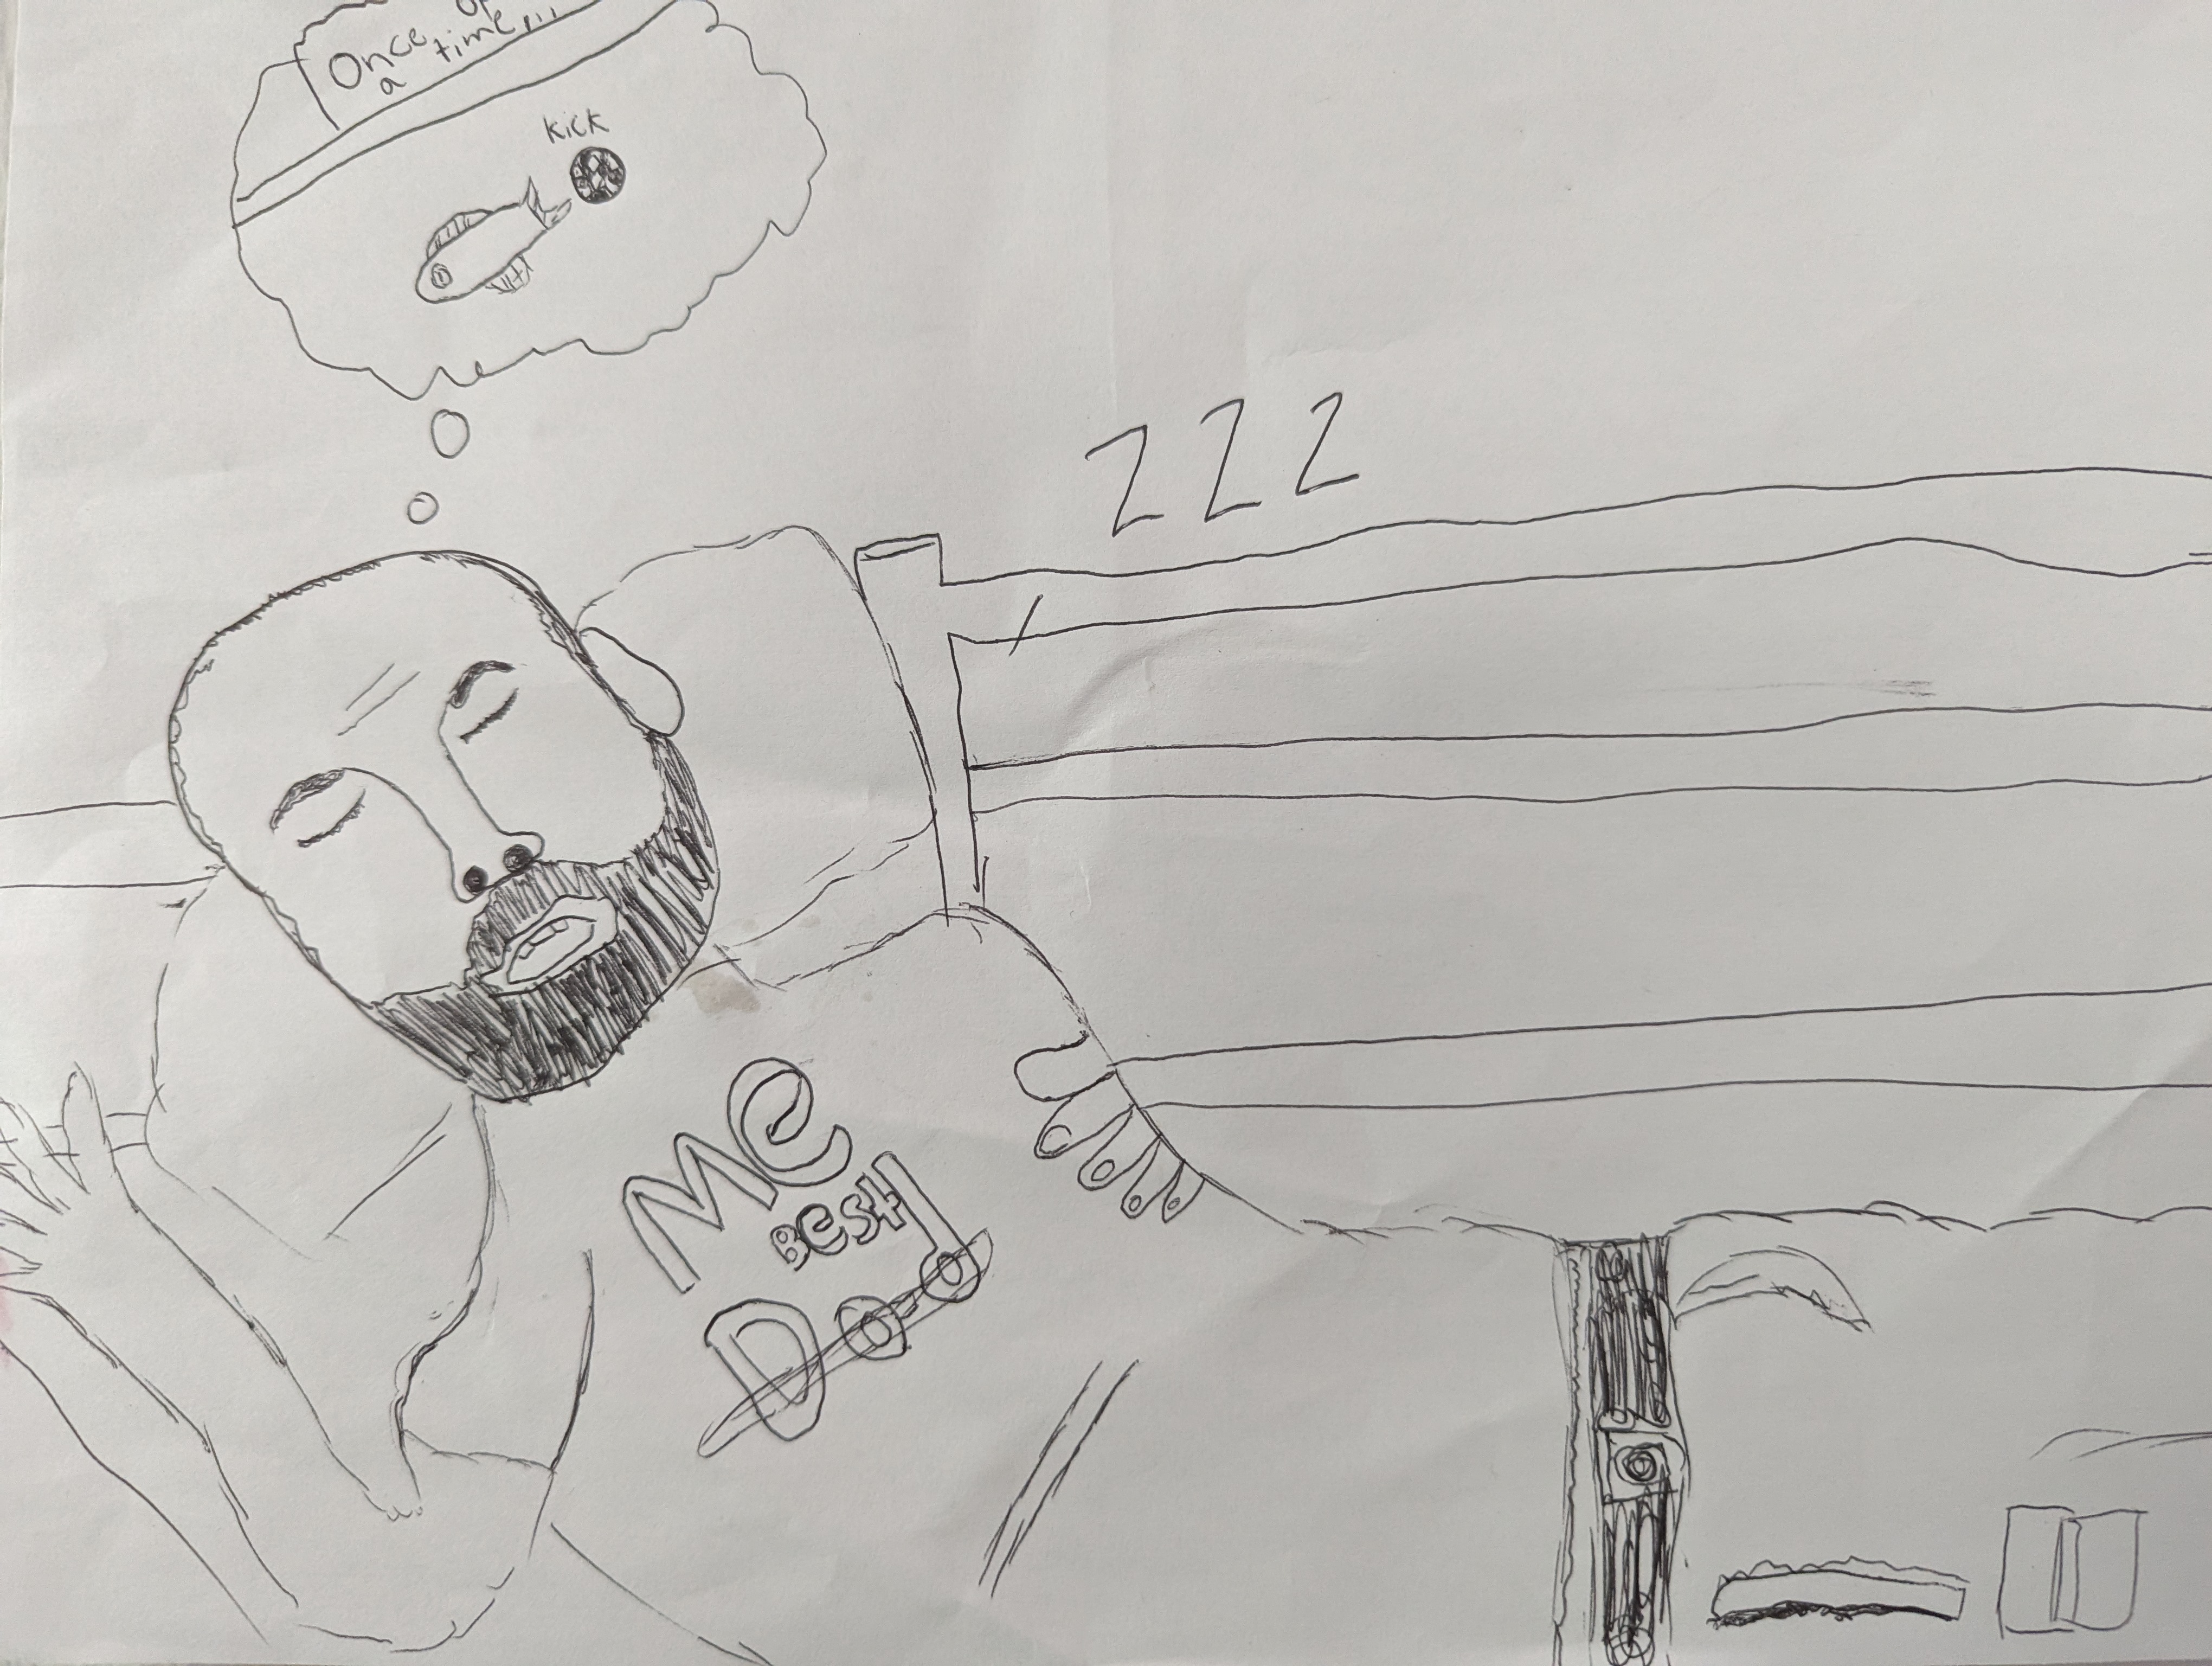 Once up
a time...
kick
ZZZ
Me
Best
Dad